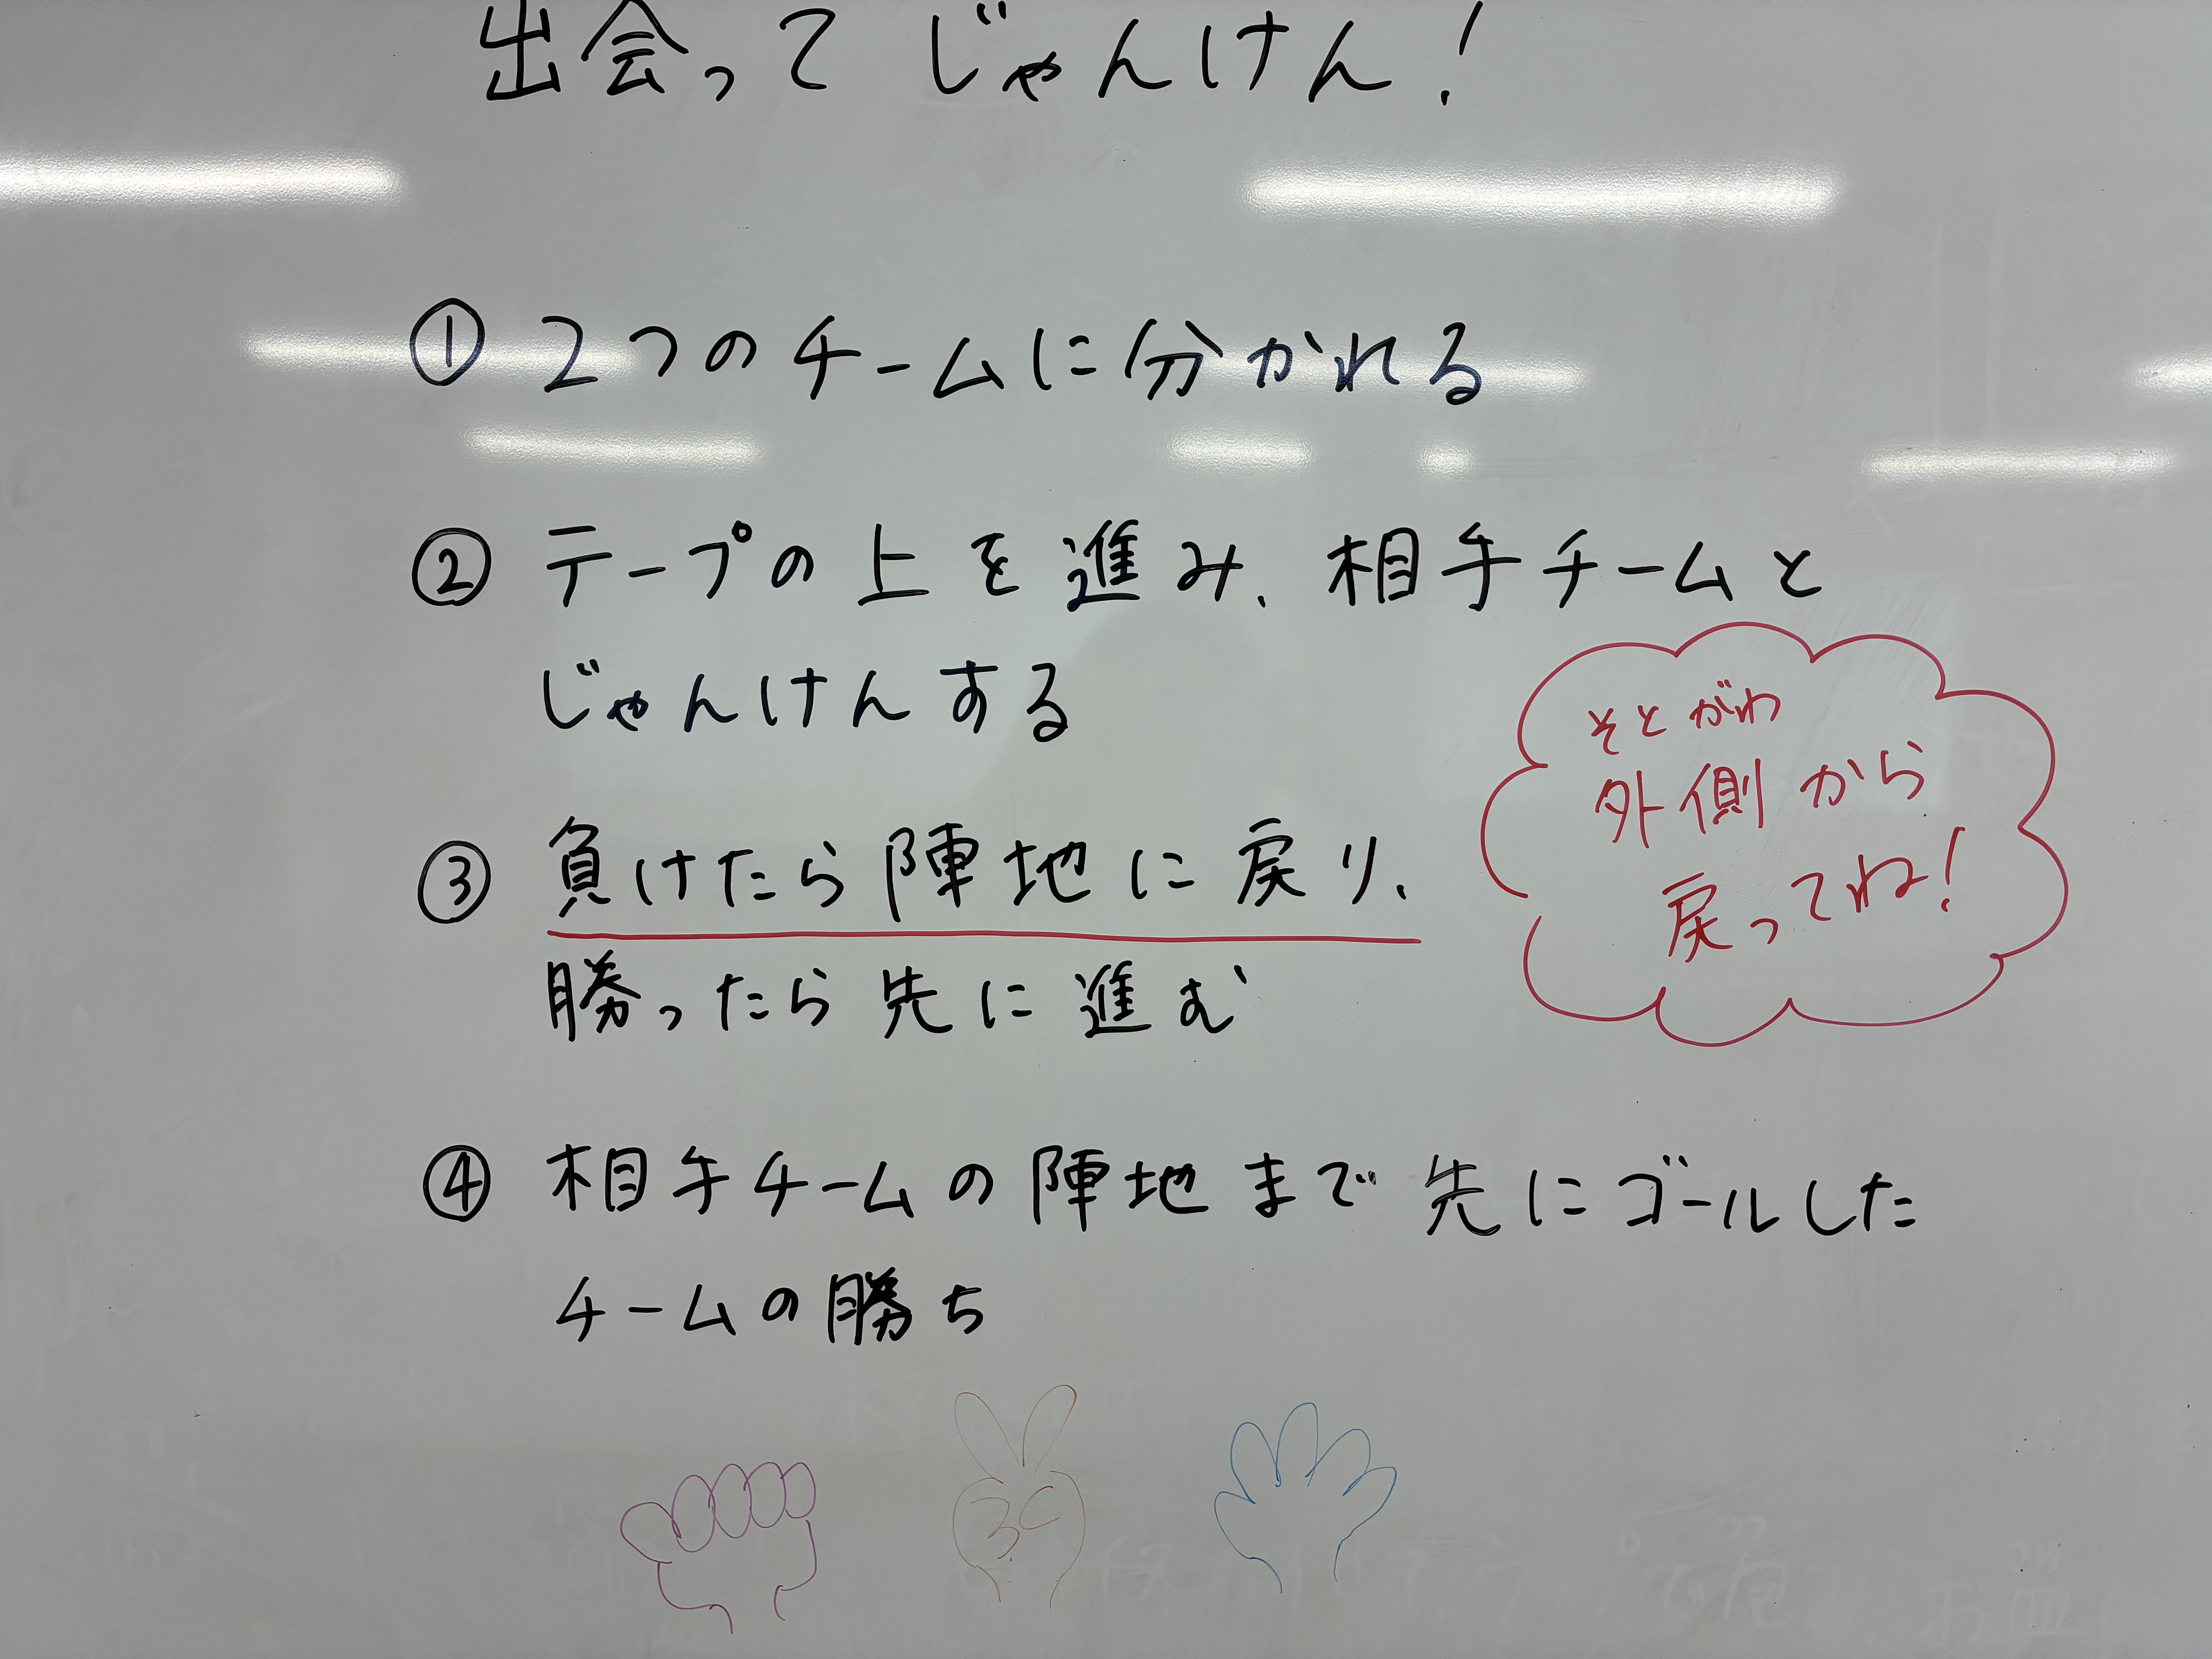 出会って じゃんけん!
① 2つのチームに分かれる
② テープの上を進み、相手チームと
じゃんけんする
③ 負けたら陣地に戻り、
勝ったら先に進む
そとがわ
外側から
戻ってね!
④ 相手チームの陣地まで先にゴールした
チームの勝ち